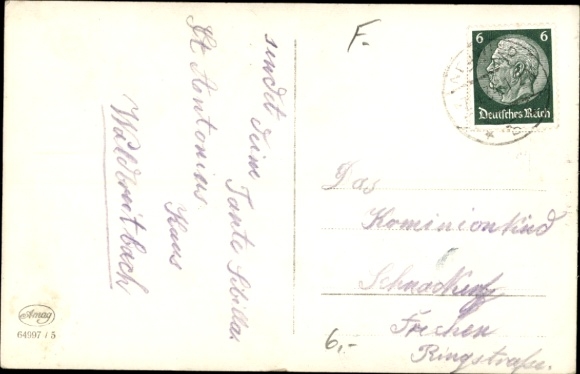 sendet Deine
Tante Sibilla.
St Antonius
Haus
Waldbreitbach
Amag
64997 / 5
F.
6 6
Deutsches Reich
Das
Kominionkind
Frechen
Ringstraße.
6,-